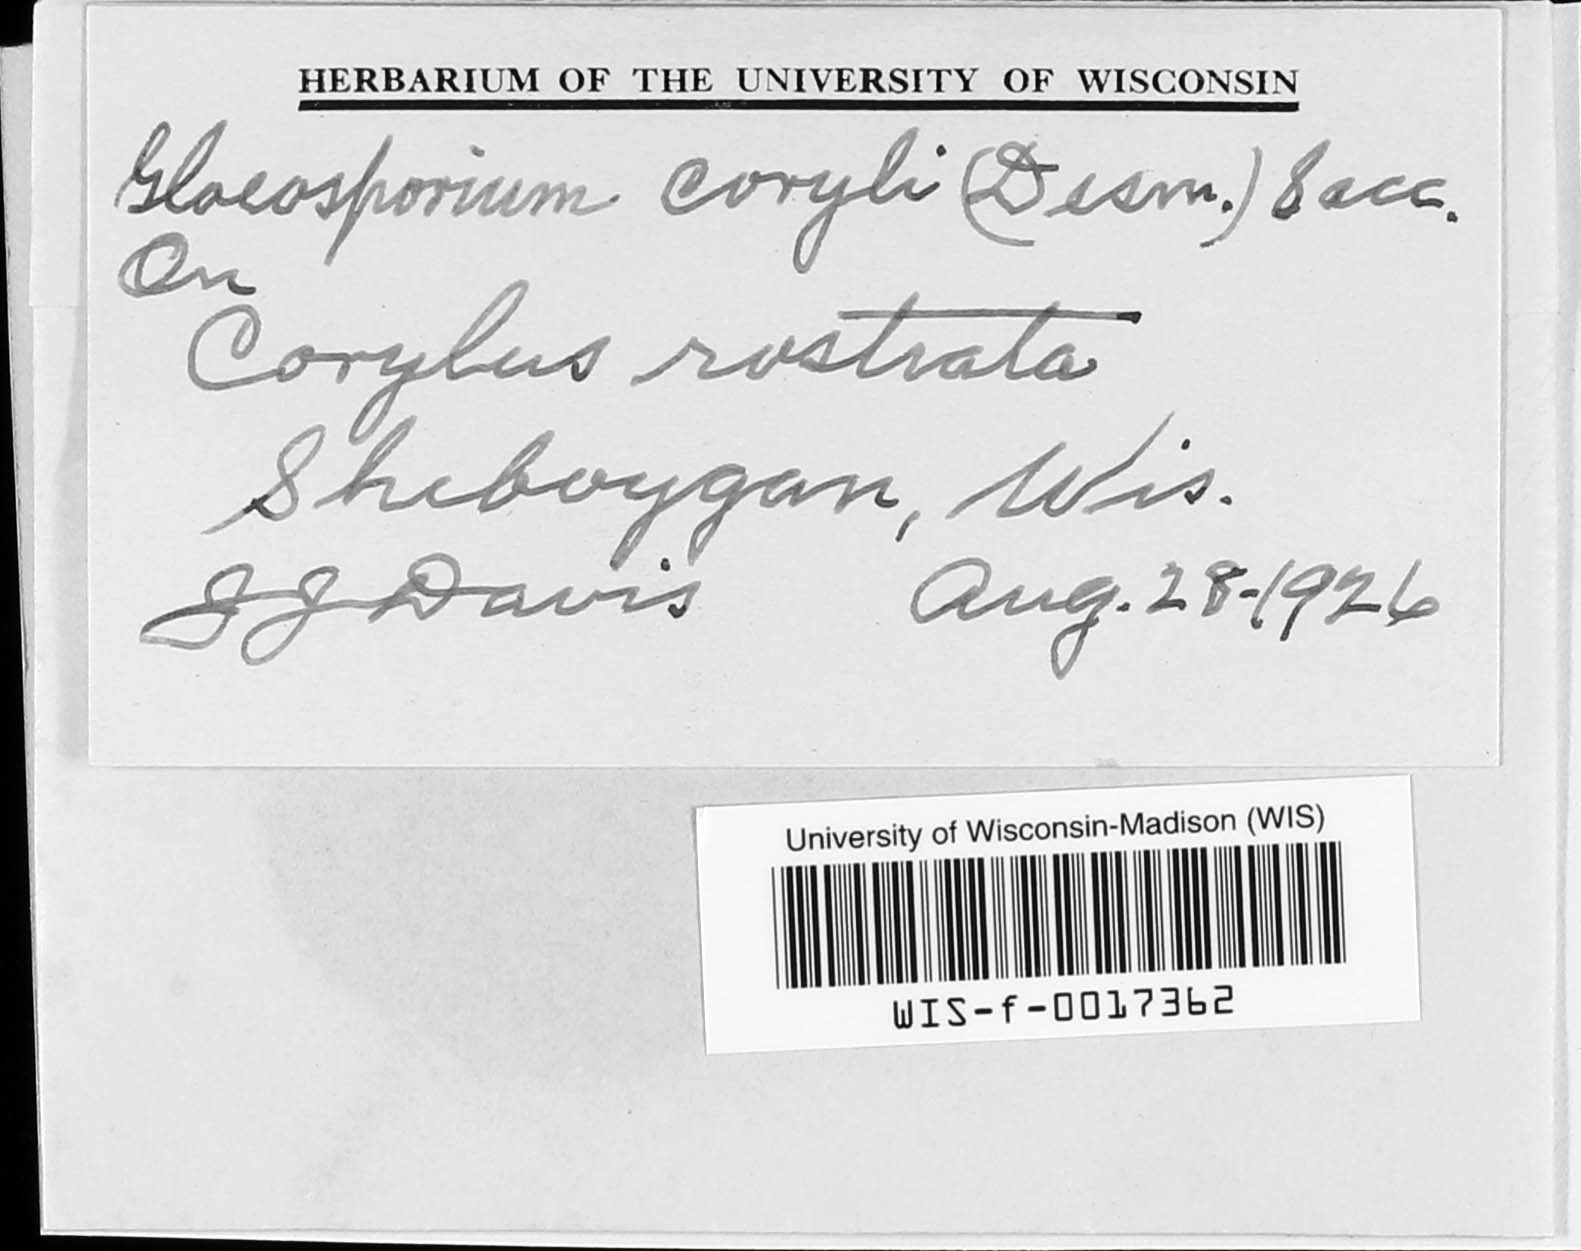 HERBARIUM OF THE UNIVERSITY OF WISCONSIN
Gloeosporium coryli (Desm.) Sacc.
On
Corylus rostrata
Sheboygan, Wis.
JJ Davis Aug. 28-1926
University of Wisconsin-Madison (WIS)
WIS-f-0017362